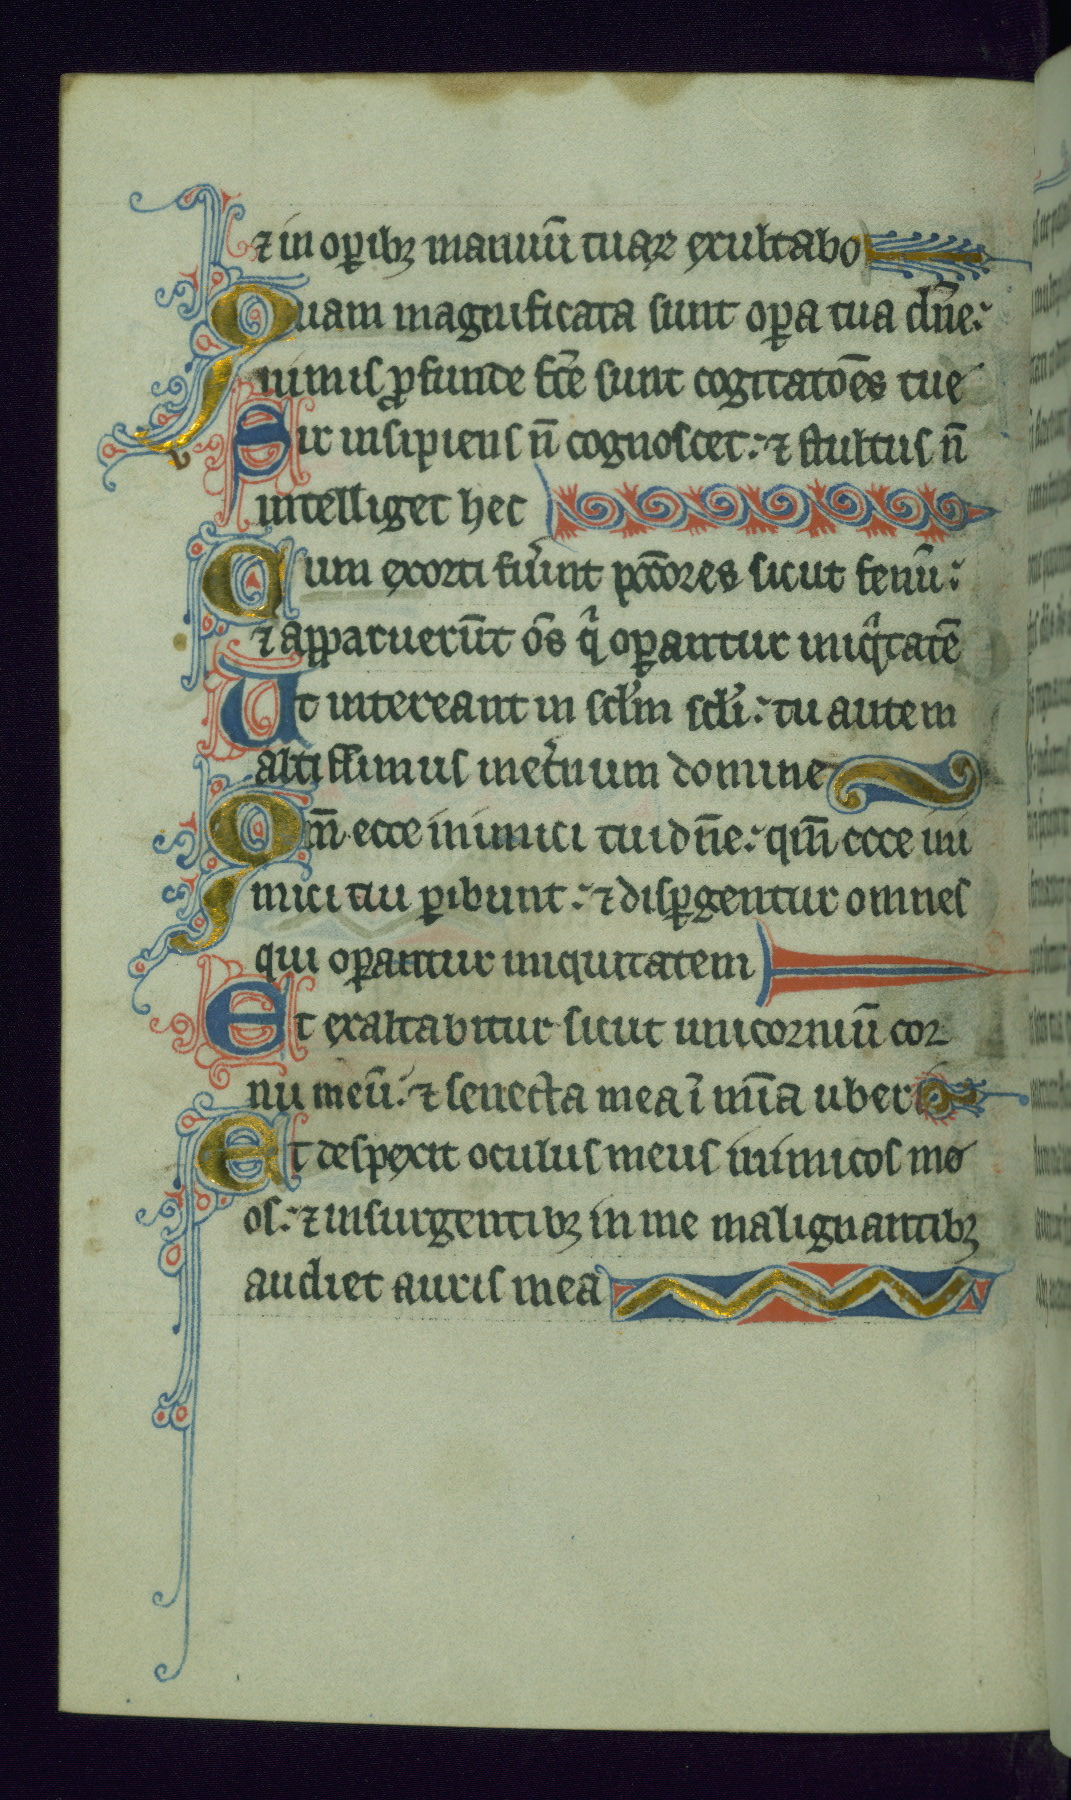 ⁊ in op̄ibꝫ manuū tuaꝝ exultabo
Quam magnificata sunt oꝑa tua dn̄e:
nimis ꝓfunde fc̄e sunt cogitatōēs tue
Vir insipiens n̄ cognoscet: ⁊ stultus n̄
intelliget hec
Cum exorti fuᷣint pcc̄ores sicut fenū:
⁊ apparuerūt om̄s qͥ oꝑantur iniqͥtatē
Ut intereant in scłm scłi: tu autem
altissimus inet̄num domine
Qm̄ ecce inimici tui dn̄e: qm̄ ecce ini
mici tui ꝑibunt: ⁊ disꝑgentur omnes
qui oꝑantur iniquitatem
Et exaltabitur sicut unicorniū cor
nu meū: ⁊ senecta mea ī mīa uberi
Et despexit oculus meus inimicos me
os: ⁊ insurgentibꝫ in me malignantibꝫ
audiet auris mea